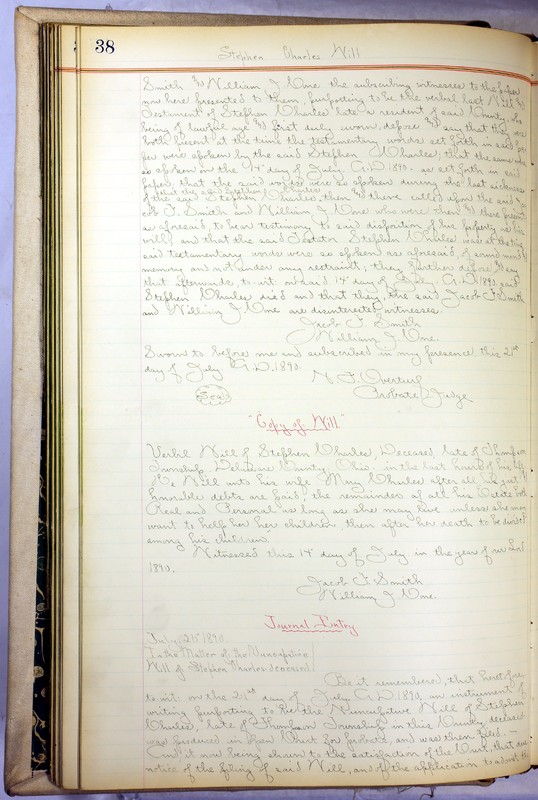 38
Stephen Charles Will
Smith and William J. Une the subscribing witnesses to the paper
now here presented to them, purporting to be the verbal last Will and
Testament of Stephen Charles late a resident of said County, who
being of lawful age and first duly sworn, depose and say that they were
both present at the time the testamentary words set forth in said pa-
per were spoken by the said Stephen Charles; that the same were
so spoken on the 14" day of July A.D. 1890. as set forth in said
paper, that the said words were so spoken during the last sickness
of the said Stephen Charles, then and there called upon the said Ja-
that the said Stephen Charles
cob F. Smith and William J. Une who were then and there present
as aforesaid, to bear testimony to said disposition of his property as his
will, and that the said Testator Stephen Charles was at the time
said testamentary words were so spoken as aforesaid, of sound mind and
memory and not under any restraint; they further depose and say
that afterwards, to-wit, on said 14" day of July A.D. 1890, said
Stephen Charles died and that they, the said Jacob F. Smith
and William J. Une are disinterested witnesses.
Jacob F. Smith
William J. Une.
Sworn to before me and subscribed in my presence this 21st
day of July A.D. 1890.
N. F. Overturf
Seal
Probate Judge.
"Copy of Will"
Verbil Will of Stephen Charles, Deceased, late of Thompson
Township, Delaware County, Ohio, in the last hours of his life
He Will unto his wife Mary Charles after all his just and
honorable debts are paid, the remainder of all his Estate both
Real and Personal as long as she may live unless she may
want to help her her children, then after her death to be divided
among his children.
Witnessed this 14" day of July in the year of our Lord
1890.
Jacob F. Smith
William J. Une.
Journal Entry
July 21st 1890.
In the Matter of the Nuncupative
Will of Stephen Charles deceased
Be it remembered, that heretofore
to-wit on the 21st day of July A.D. 1890, an instrument of
writing purporting to be the Nuncupative Will of Stephen
Charles, late of Thompson Township in this County, deceased
was produced in Open Court for probate, and was then filed.—
And it now being shown to the satisfaction of the Court, that due
notice of the filing of said Will, and of the application to admit the